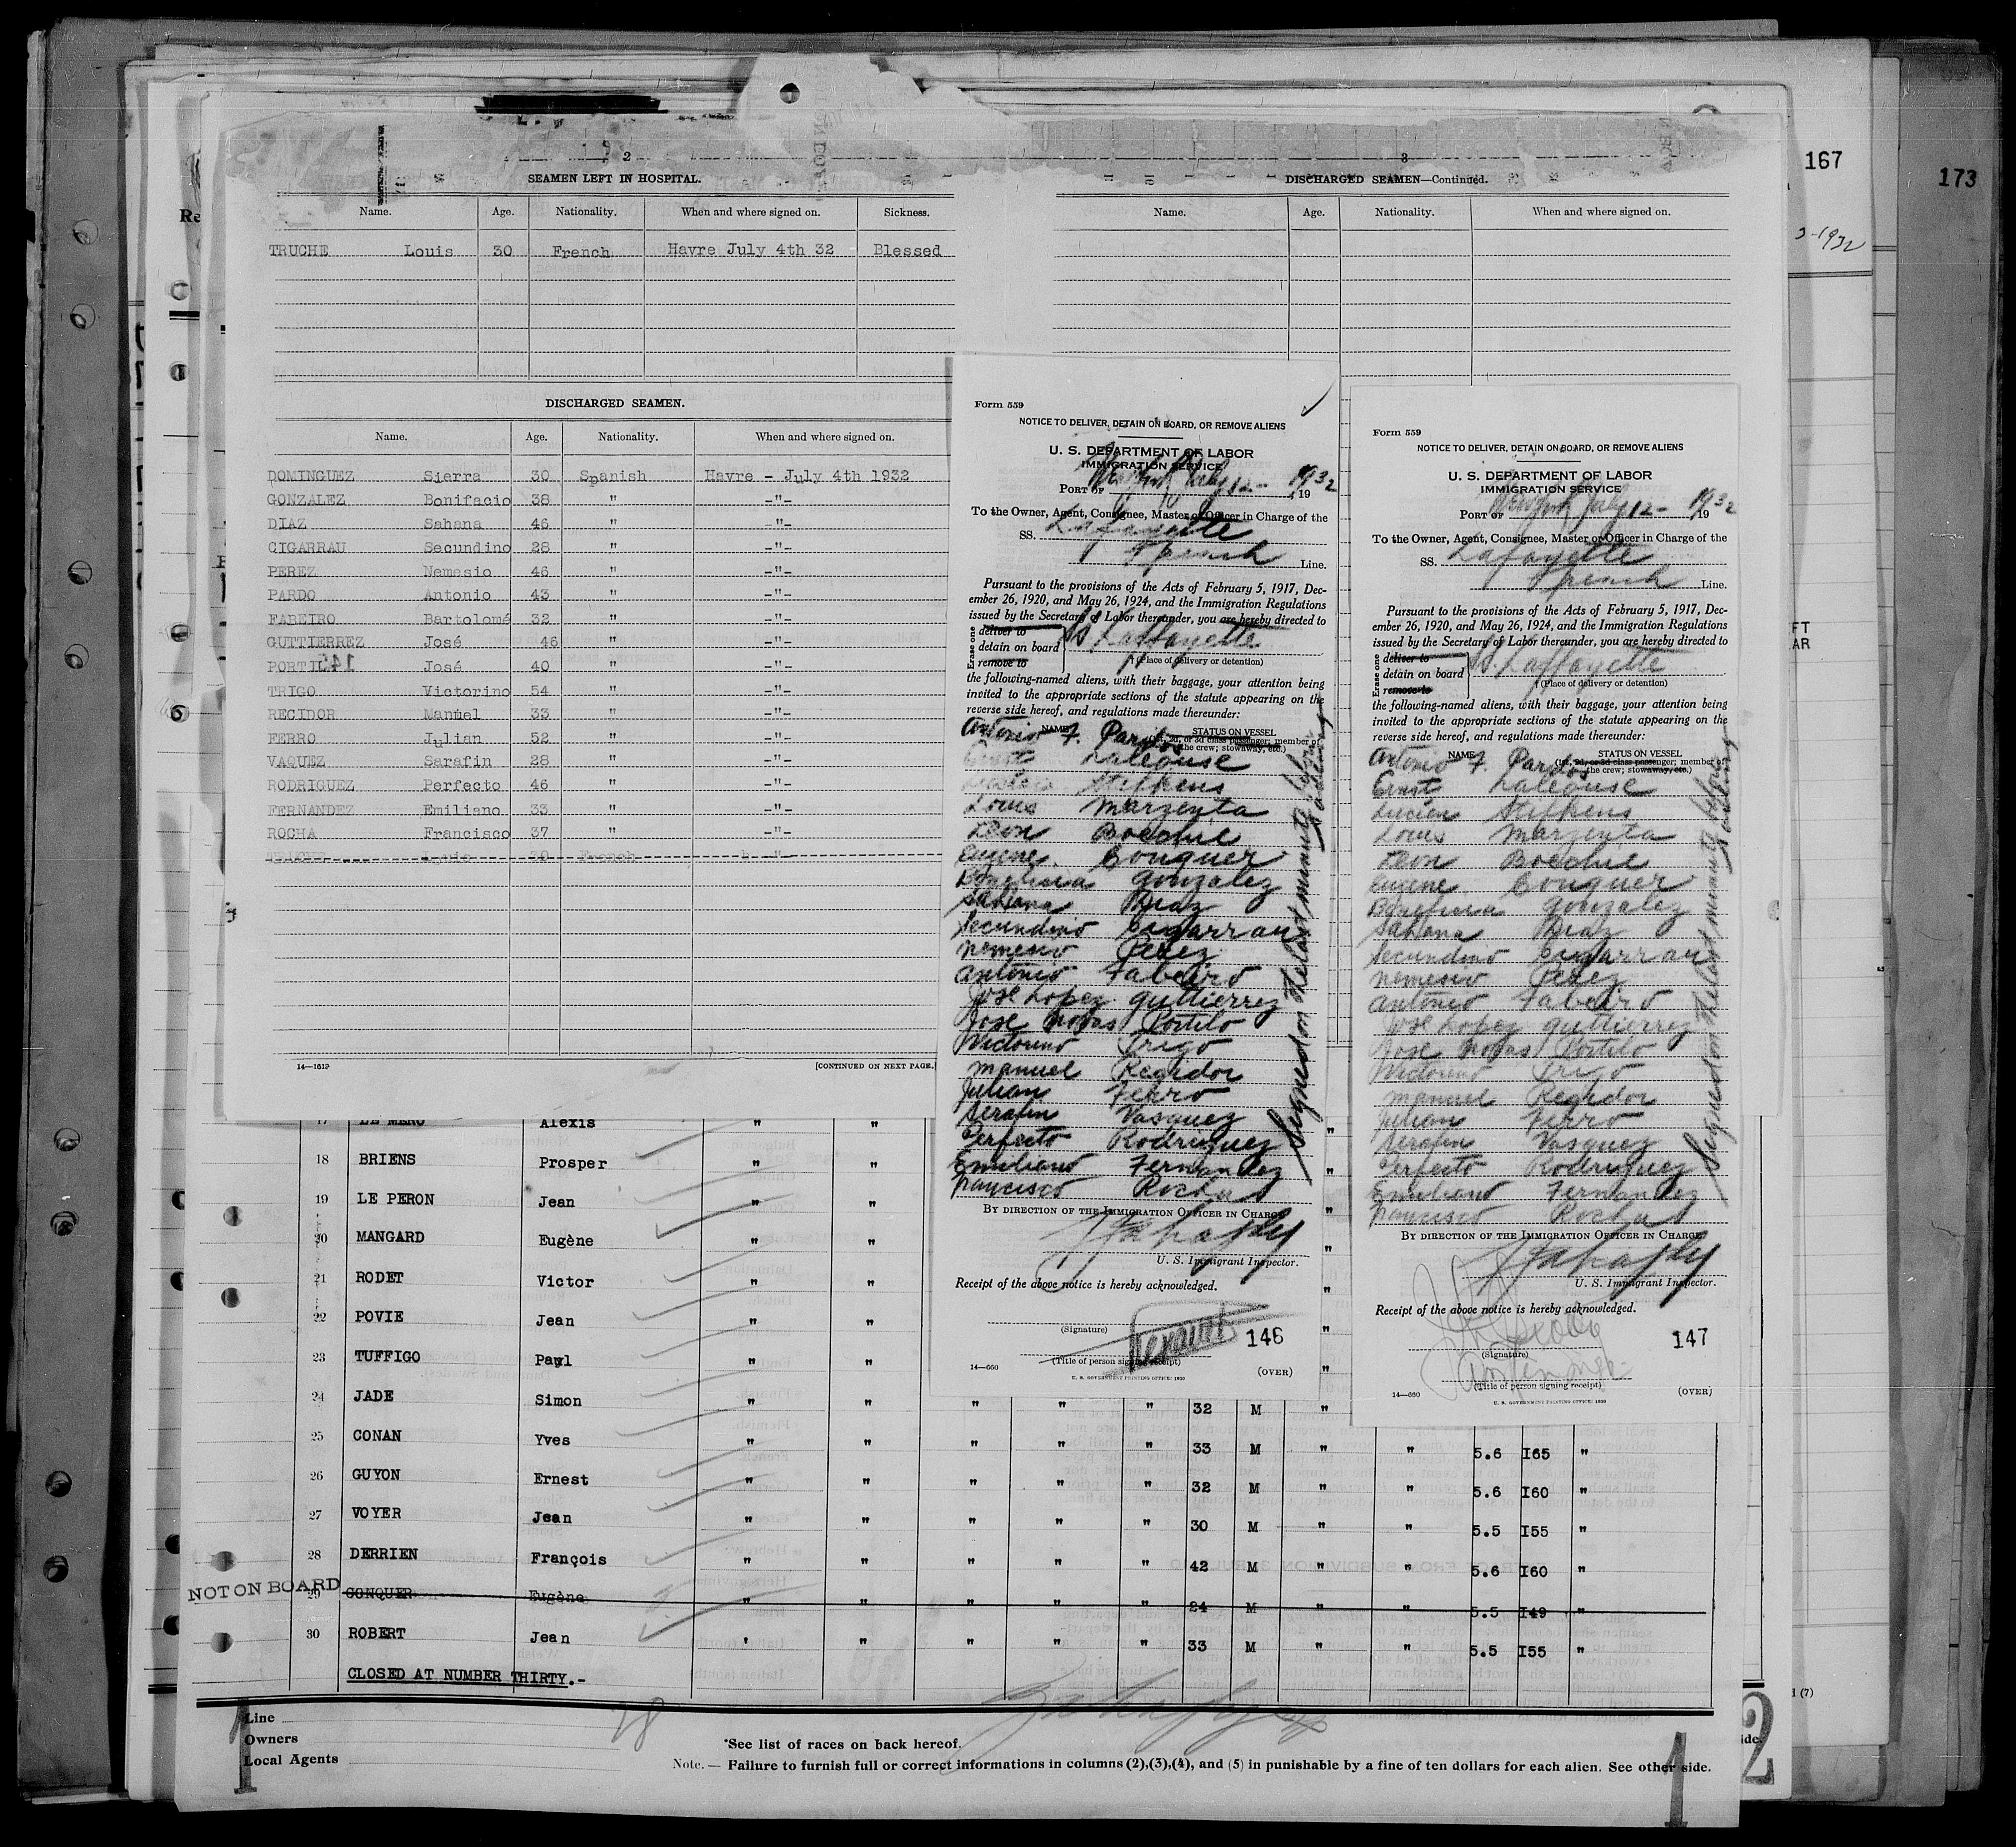 167
173
3-1932
2
SEAMEN LEFT IN HOSPITAL.
Name. Age. Nationality. When and where signed on. Sickness.
TRUCHE Louis 30 French Havre July 4th 32 Blessed
3
DISCHARGED SEAMEN—Continued.
Name. Age. Nationality. When and where signed on.
DISCHARGED SEAMEN.
Name. Age. Nationality. When and where signed on.
DOMINGUEZ Sierra 30 Spanish Havre - July 4th 1932
GONZALEZ Bonifacio 38 " -"-
DIAZ Sahana 46 " -"-
CIGARRAU Secundino 28 " -"-
PEREZ Nemesio 46 " -"-
PARDO Antonio 43 " -"-
FABEIRO Bartolomé 32 " -"-
GUTTIERREZ José 46 " -"-
José 40 " -"-
TRIGO Victorino 54 " -"-
RECIDOR Manuel 33 " -"-
FERRO Julian 52 " -"-
VAQUEZ Sarafin 28 " -"-
RODRIGUEZ Perfecto 46 " -"-
FERNANDEZ Emiliano 33 " -"-
ROCHA Francisco 37 " -"-
14—1613
[CONTINUED ON NEXT PAGE.]
Form 559
NOTICE TO DELIVER, DETAIN ON BOARD, OR REMOVE ALIENS
U. S. DEPARTMENT OF LABOR
IMMIGRATION SERVICE
PORT OF New York July 12 - , 1932
To the Owner, Agent, Consignee, Master or Officer in Charge of the
SS. Lafayette
French Line.
Pursuant to the provisions of the Acts of February 5, 1917, Dec-
ember 26, 1920, and May 26, 1924, and the Immigration Regulations
issued by the Secretary of Labor thereunder, you are hereby directed to
Erase one
deliver to
detain on board SS. Laffayette
remove to
† (Place of delivery or detention)
the following-named aliens, with their baggage, your attention being
invited to the appropriate sections of the statute appearing on the
reverse side hereof, and regulations made thereunder:
NAME STATUS ON VESSEL
(1st, 2d, or 3d class passenger; member of
the crew; stowaway, etc.)
Antonio F. Pardos
Ernst Laleouse
Stephens
Louis Marzenta
Leon Boechie
Eugene Conquer
Gonzalez
Sahana Diaz
Secundino Cigarrau
Nemesio Perez
Antonio Fabeiro
Jose Lopez Guttierrez
Jose Novas Portilo
Victorino Trigo
Manuel Regidor
Julian Ferro
Serafin Vasquez
Perfecto Rodriguez
Emiliano Fernandez
Francisco Rocha
Signed on the last minute before sailing
BY DIRECTION OF THE IMMIGRATION OFFICER IN CHARGE
U. S. Immigrant Inspector.
Receipt of the above notice is hereby acknowledged.
(Signature)
146
(Title of person signing receipt)
14—660
(OVER)
U. S. GOVERNMENT PRINTING OFFICE: 1930
Form 559
NOTICE TO DELIVER, DETAIN ON BOARD, OR REMOVE ALIENS
U. S. DEPARTMENT OF LABOR
IMMIGRATION SERVICE
PORT OF New York July 12 - 1932
To the Owner, Agent, Consignee, Master or Officer in Charge of the
SS. Lafayette
French Line.
Pursuant to the provisions of the Acts of February 5, 1917, Dec-
ember 26, 1920, and May 26, 1924, and the Immigration Regulations
issued by the Secretary of Labor thereunder, you are hereby directed to
Erase one
deliver to
detain on board SS. Laffayette
remove to
† (Place of delivery or detention)
the following-named aliens, with their baggage, your attention being
invited to the appropriate sections of the statute appearing on the
reverse side hereof, and regulations made thereunder:
NAME STATUS ON VESSEL
(1st, 2d, or 3d class passenger; member of
the crew; stowaway, etc.)
Antonio F. Pardos
Ernst Laleouse
Lucien Stephens
Louis Marzenta
Leon Boechie
Eugene Conquer
Gonzalez
Sahana Diaz
Secundino Cigarrau
Nemesio Perez
Antonio Fabeiro
Jose Lopez Guttierrez
Jose Novas Portilo
Victorino Trigo
Manuel Regidor
Julian Ferro
Serafin Vasquez
Perfecto Rodriguez
Emiliano Fernandez
Francisco Rocha
Signed on the last minute before sailing
BY DIRECTION OF THE IMMIGRATION OFFICER IN CHARGE
U. S. Immigrant Inspector.
Receipt of the above notice is hereby acknowledged.
(Signature)
147
(Title of person signing receipt)
14—660
(OVER)
U. S. GOVERNMENT PRINTING OFFICE: 1930
17 LE MERO Alexis " "
18 BRIENS Prosper " "
19 LE PERON Jean " "
20 MANGARD Eugène " "
21 RODET Victor " "
22 POVIE Jean " "
23 TUFFIGO Paul " "
24 JADE Simon " " " " " 32 M "
25 CONAN Yves " " " " " 33 M " " 5.6 I65 "
26 GUYON Ernest " " " " " 32 M " " 5.6 I60 "
27 VOYER Jean " " " " " 30 M " " 5.5 I55 "
28 DERRIEN François " " " " " 42 M " " 5.6 I60 "
NOT ON BOARD 29 CONQUER Eugène " " " " " 24 M " " 5.5 I49 "
30 ROBERT Jean " " " " " 33 M " " 5.5 I55 "
CLOSED AT NUMBER THIRTY.-
Line
Owners
Local Agents
28
*See list of races on back hereof.
Note. — Failure to furnish full or correct informations in columns (2),(3),(4), and (5) in punishable by a fine of ten dollars for each alien. See other side.
1
1
2